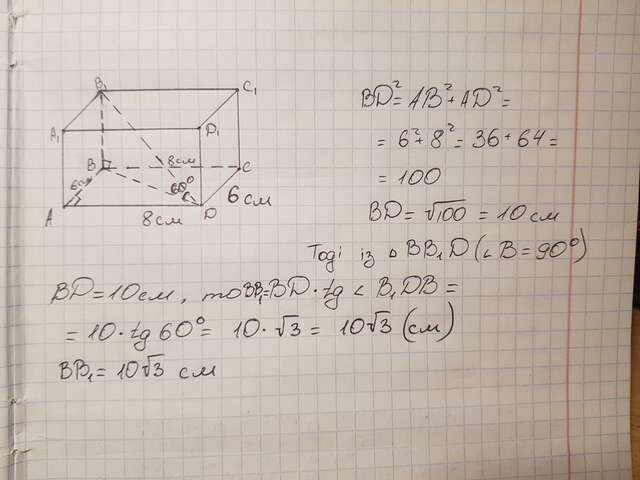 B₁
C₁
A₁
D₁
B
8см
C
6см
60°
A
8см
D
6см
BD² = AB² + AD² =
= 6² + 8² = 36 + 64 =
= 100
BD = √100 = 10 см
Тоді із △ BB₁D (∠B = 90°)
BD = 10 см, то BB₁ = BD · tg ∠ B₁DB =
= 10 · tg 60° = 10 · √3 = 10√3 (см)
BB₁ = 10√3 см